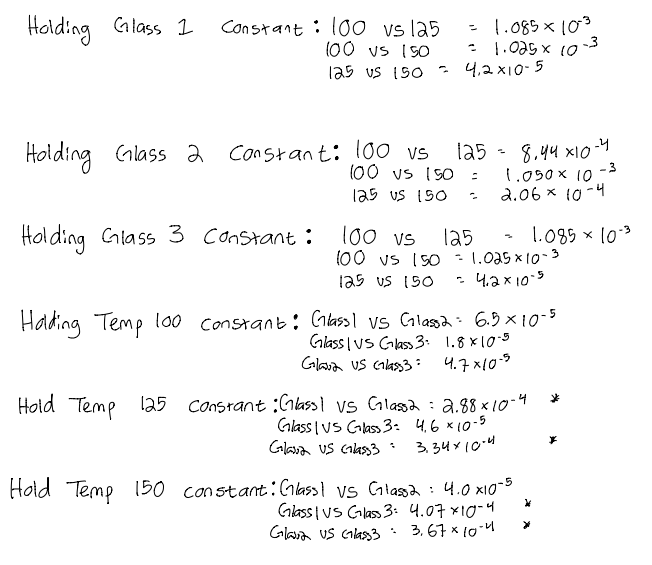 Holding Glass 1 Constant: 100 vs 125 = 1.085 × 10⁻³
100 vs 150 = 1.025 × 10⁻³
125 vs 150 = 4.2 × 10⁻⁵
Holding Glass 2 Constant: 100 vs 125 = 8.44 × 10⁻⁴
100 vs 150 = 1.050 × 10⁻³
125 vs 150 = 2.06 × 10⁻⁴
Holding Glass 3 Constant: 100 vs 125 = 1.085 × 10⁻³
100 vs 150 = 1.025 × 10⁻³
125 vs 150 = 4.2 × 10⁻⁵
Holding Temp 100 constant: Glass1 vs Glass2 = 6.5 × 10⁻⁵
Glass1 vs Glass3 = 1.8 × 10⁻⁵
Glass2 vs Glass3 = 4.7 × 10⁻⁵
Hold Temp 125 constant: Glass1 vs Glass2 = 2.88 × 10⁻⁴ *
Glass1 vs Glass3 = 4.6 × 10⁻⁵
Glass2 vs Glass3 = 3.34 × 10⁻⁴ *
Hold Temp 150 constant: Glass1 vs Glass2 = 4.0 × 10⁻⁵
Glass1 vs Glass3 = 4.07 × 10⁻⁴ *
Glass2 vs Glass3 = 3.67 × 10⁻⁴ *